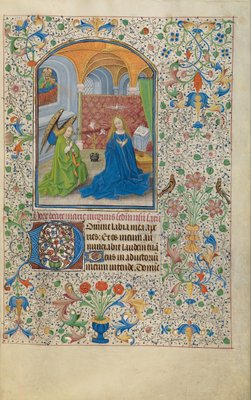 Hore beate marie virginis
Domine labia mea ape
ries. Et os meum an
nunciabit laudem tuā
Deus in adiutoriū
meum intende. Domie